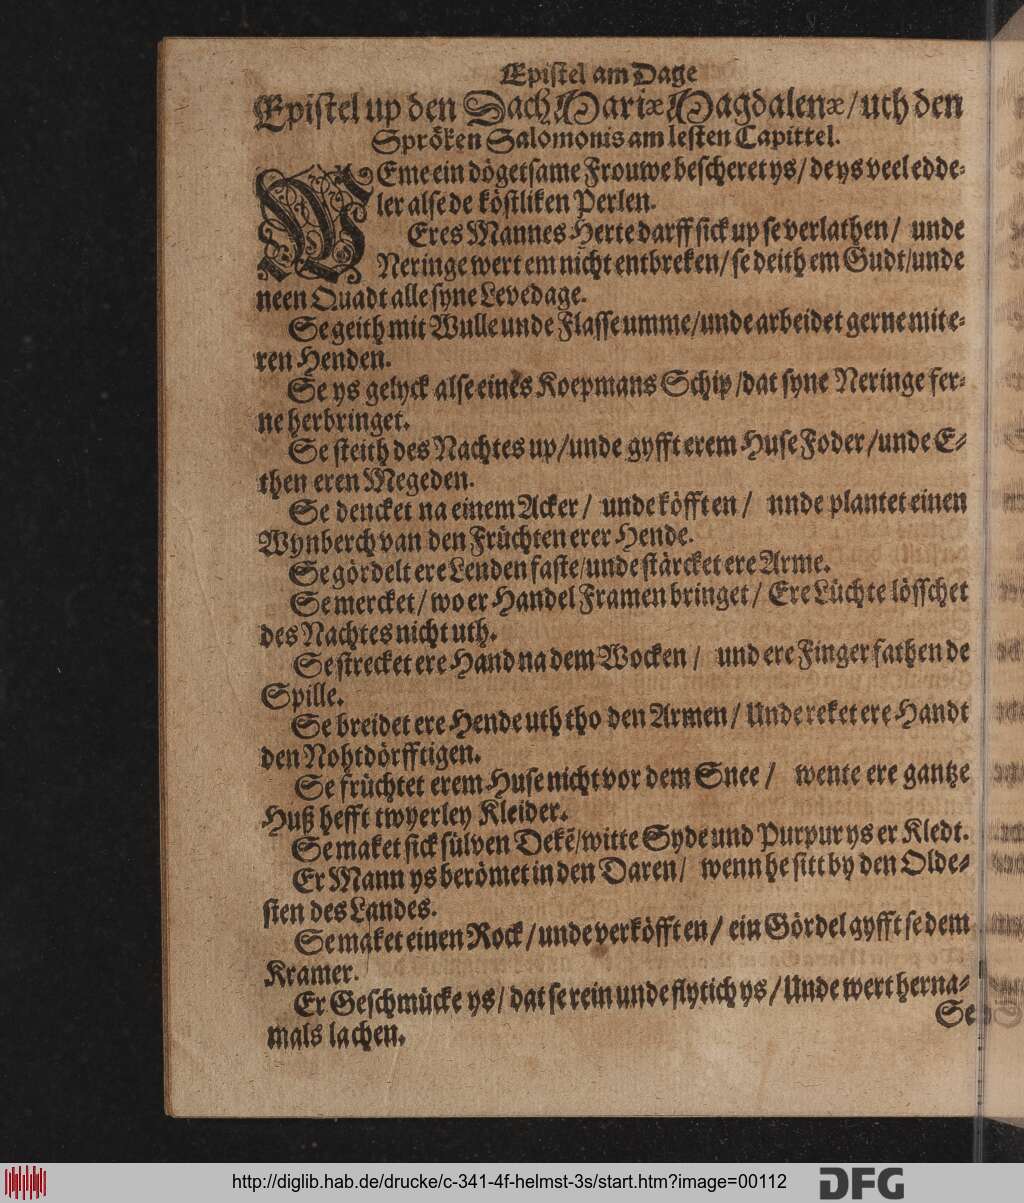 Epistel am Dage
Epistel up den Dach Mariæ Magdalenæ/ uth den
Spröken Salomonis am lesten Capittel.
WEme ein dögetsame Frouwe bescheret ys/ de ys veel edde-
ler alse de köstliken Perlen.
Eres Mannes Herte darff sick up se verlathen/ unde
Neringe wert em nicht entbreken/ se deith em Gudt/unde
neen Quadt alle syne Levedage.
Se geith mit Wulle unde Flasse umme/unde arbeidet gerne mit e-
ren Henden.
Se ys gelyck alse eines Koepmans Schip/dat syne Neringe fer-
ne herbringet.
Se steith des Nachtes up/unde gyfft erem Huse Foder/unde E-
then eren Megeden.
Se dencket na einem Acker/ unde köfft en/ nnde plantet einen
Wynberch van den Früchten erer Hende.
Se gördelt ere Lenden faste/unde stärcket ere Arme.
Se mercket/ wo er Handel Framen bringet/ Ere Lüchte lösschet
des Nachtes nicht uth.
Se strecket ere Hand na dem Wocken/ und ere Finger fathen de
Spille.
Se breidet ere Hende uth tho den Armen/ Unde reket ere Handt
den Nohtdörfftigen.
Se früchtet erem Huse nicht vor dem Snee/ wente ere gantze
Huß hefft twyerley Kleider.
Se maket sick sülven Dekẽ/witte Syde und Purpur ys er Kledt.
Er Mann ys berömet in den Daren/ wenn he sitt by den Olde-
sten des Landes.
Se maket einen Rock/ unde verköfft en/ ein Gördel gyfft se dem
Kramer.
Er Geschmücke ys/ dat se rein unde flytich ys/ Unde wert herna-
mals lachen.
Se
http://diglib.hab.de/drucke/c-341-4f-helmst-3s/start.htm?image=00112
DFG